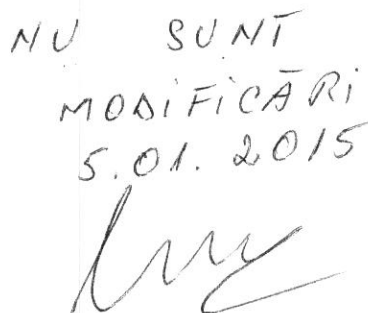 NU SUNT
MODIFICĂRI
5.01.2015